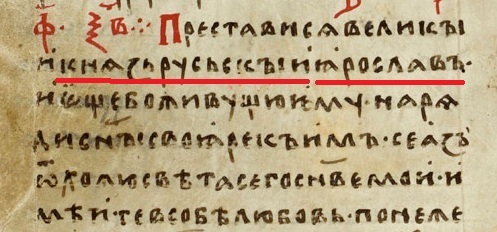 ф҃ · ѯ҃в҃ ⁘ Преставися великы
и князь русьскыи ꙗрославъ ·
и ѥще бо живущю ѥму · наря
ди с҃ны своꙗ рекъ имъ · се азъ
ѿхожю свѣта сего с҃нве мои · и
мѣи · те в собѣ любовь · понеже